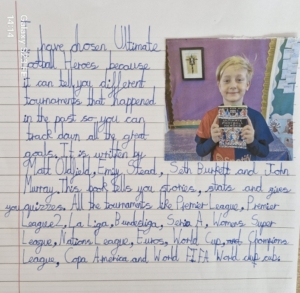 I have chosen Ultimate
Football Heroes because
it can tell you different
tournaments that happened
in the past so you can
track down all the great
goals. It is written by
Matt Oldfield, Emily Stead, Seth Burkett and John
Murray. This book tells you stories, stats and gives
you quizzes. All the tournaments the Premier League, Premier
League 2, La Liga, Bundesliga, Seria A, Womens Super
League, Nations League, Euros, World Cup, and Champions
League, Copa America and World FIFA World club cub.